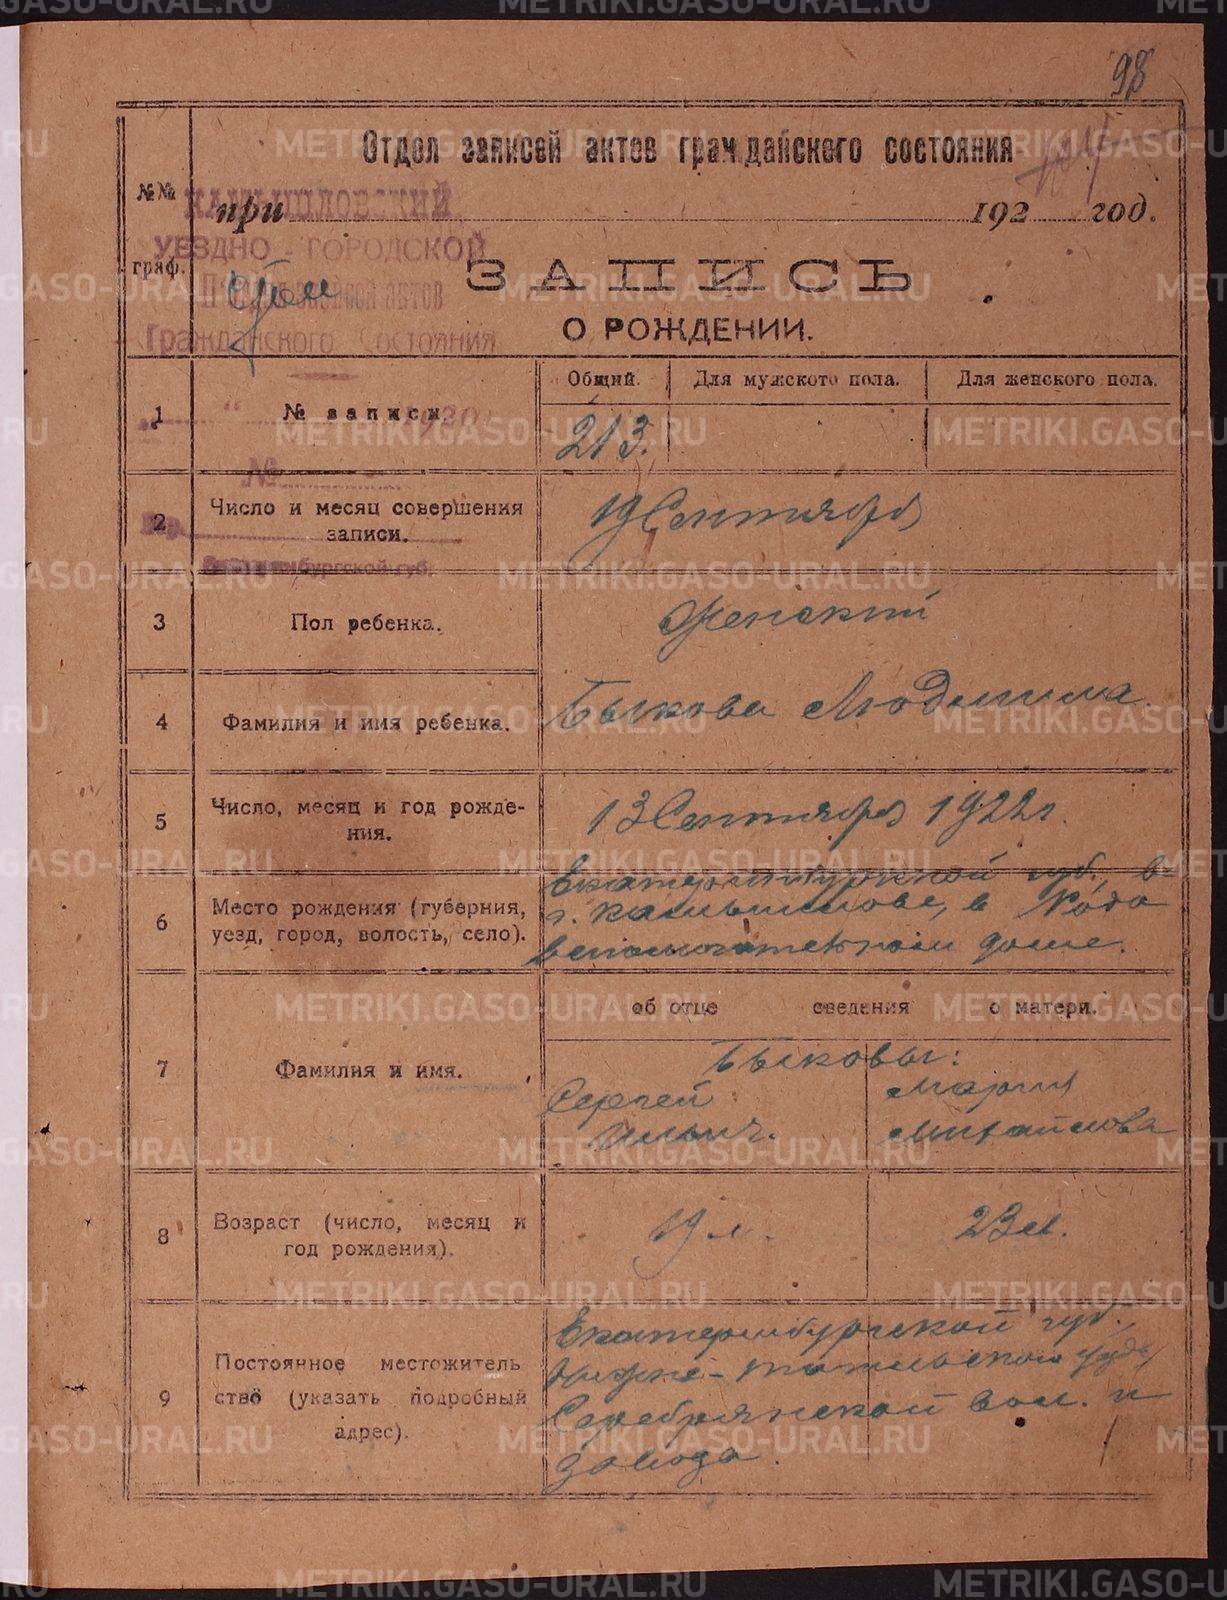 98
Отдел записей актов гражданского состояния
№№
граф.
КАМЫШЛОВСКИЙ
при 192 год.
УЕЗДНО-ГОРОДСКОЙ
ЗАПИСЬ
записей актов
Гражданского Состояния
О РОЖДЕНИИ.
Общий. Для мужского пола. Для женского пола.
1 № записи. 213.
1920
№
2 Число и месяц совершения
записи.
19 Сентября
Екатеринбургской губ.
3 Пол ребенка. Женский
4 Фамилия и имя ребенка. Быкова Людмила.
5 Число, месяц и год рожде-
ния.
13 Сентября 1922 г.
6 Место рождения (губерния,
уезд, город, волость, село).
Екатеринбургской губ., в
г. Камышлове, в Родо
вспомогательном доме.
об отце сведения о матери.
7 Фамилия и имя.
Быковы:
Сергей Мария
Ильич. Михайлова
8 Возраст (число, месяц и
год рождения).
19 л. 23 л.
9 Постоянное местожитель
ство (указать подробный
адрес).
Екатеринбургской губ.,
Нижне-Тагильского уезда
Серебрянской вол. и
завода.
METRIKI.GASO-URAL.RU